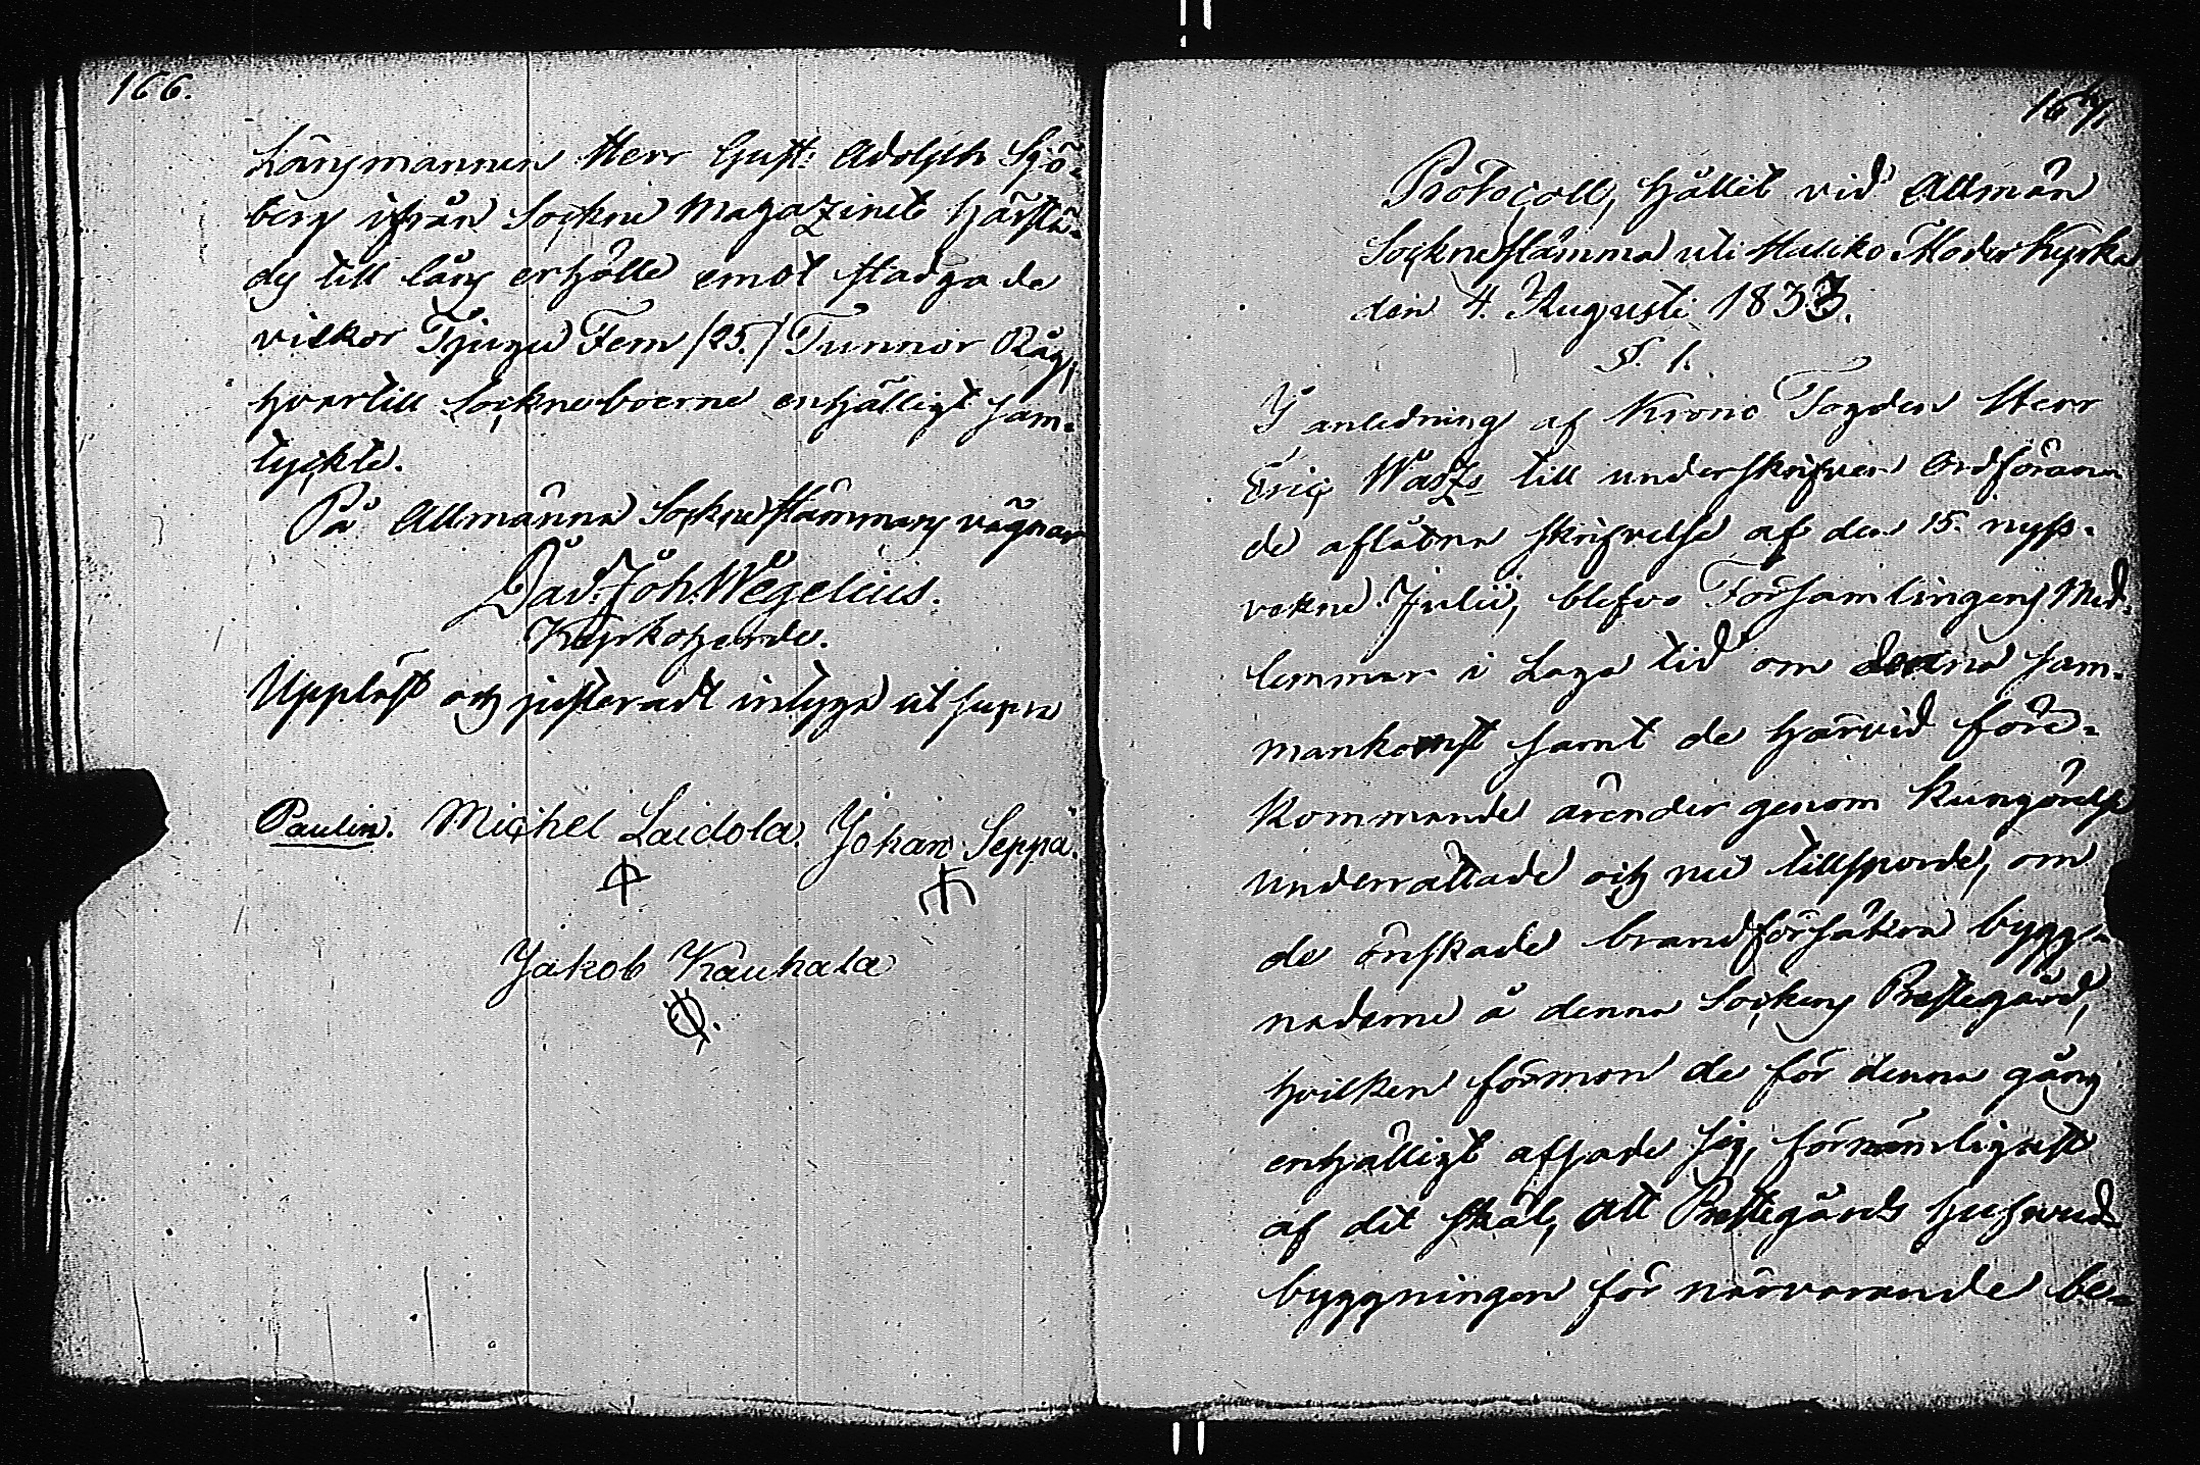 166.
Länsmannen Herr Gust: Adolph Sjö-
berg ifrån Sockne Magazinet härstä-
des till låns erhölle emot stadgade
vilkor Tjugu Fem /25./ Tunnor Råg,
hvartill Sockneboerne enhälligt sam-
tyckte.
På Allmänna Sockne Stämmans vägnar
Dav: Joh: Wegelius.
Kyrkoherde.
Uppläst och justeradt intyga ut supra
Paulin. Michel Laidola. Johan Seppä.
Jakob Kauhala
167.
Protocoll, hållit vid Allmän
Sockne Stämma uti Haliko Moder Kyrka
den 4. Augusti 1833.
§. 1.
I anledning af Krono Fogden Herr
Eric Wasz's till underskrifven Ordföran-
de aflåtna skrifvelse af den 15. nyss-
vekne Julii, blefvo Församlingens Med-
lemmar i Laga tid om denna sam-
mankomst samt de härvid före-
kommande ärender genom Kungörelse
underrättade och nu tillsporde, om
de önskade brandförsäkra bygg-
naderne å denna Sockens Prestegård,
hvilken förmon de för denna gång
enhälligt afsade sig, förnämligast
af det skäl, att Prestegårds hufvud-
byggningen för närvarande be-